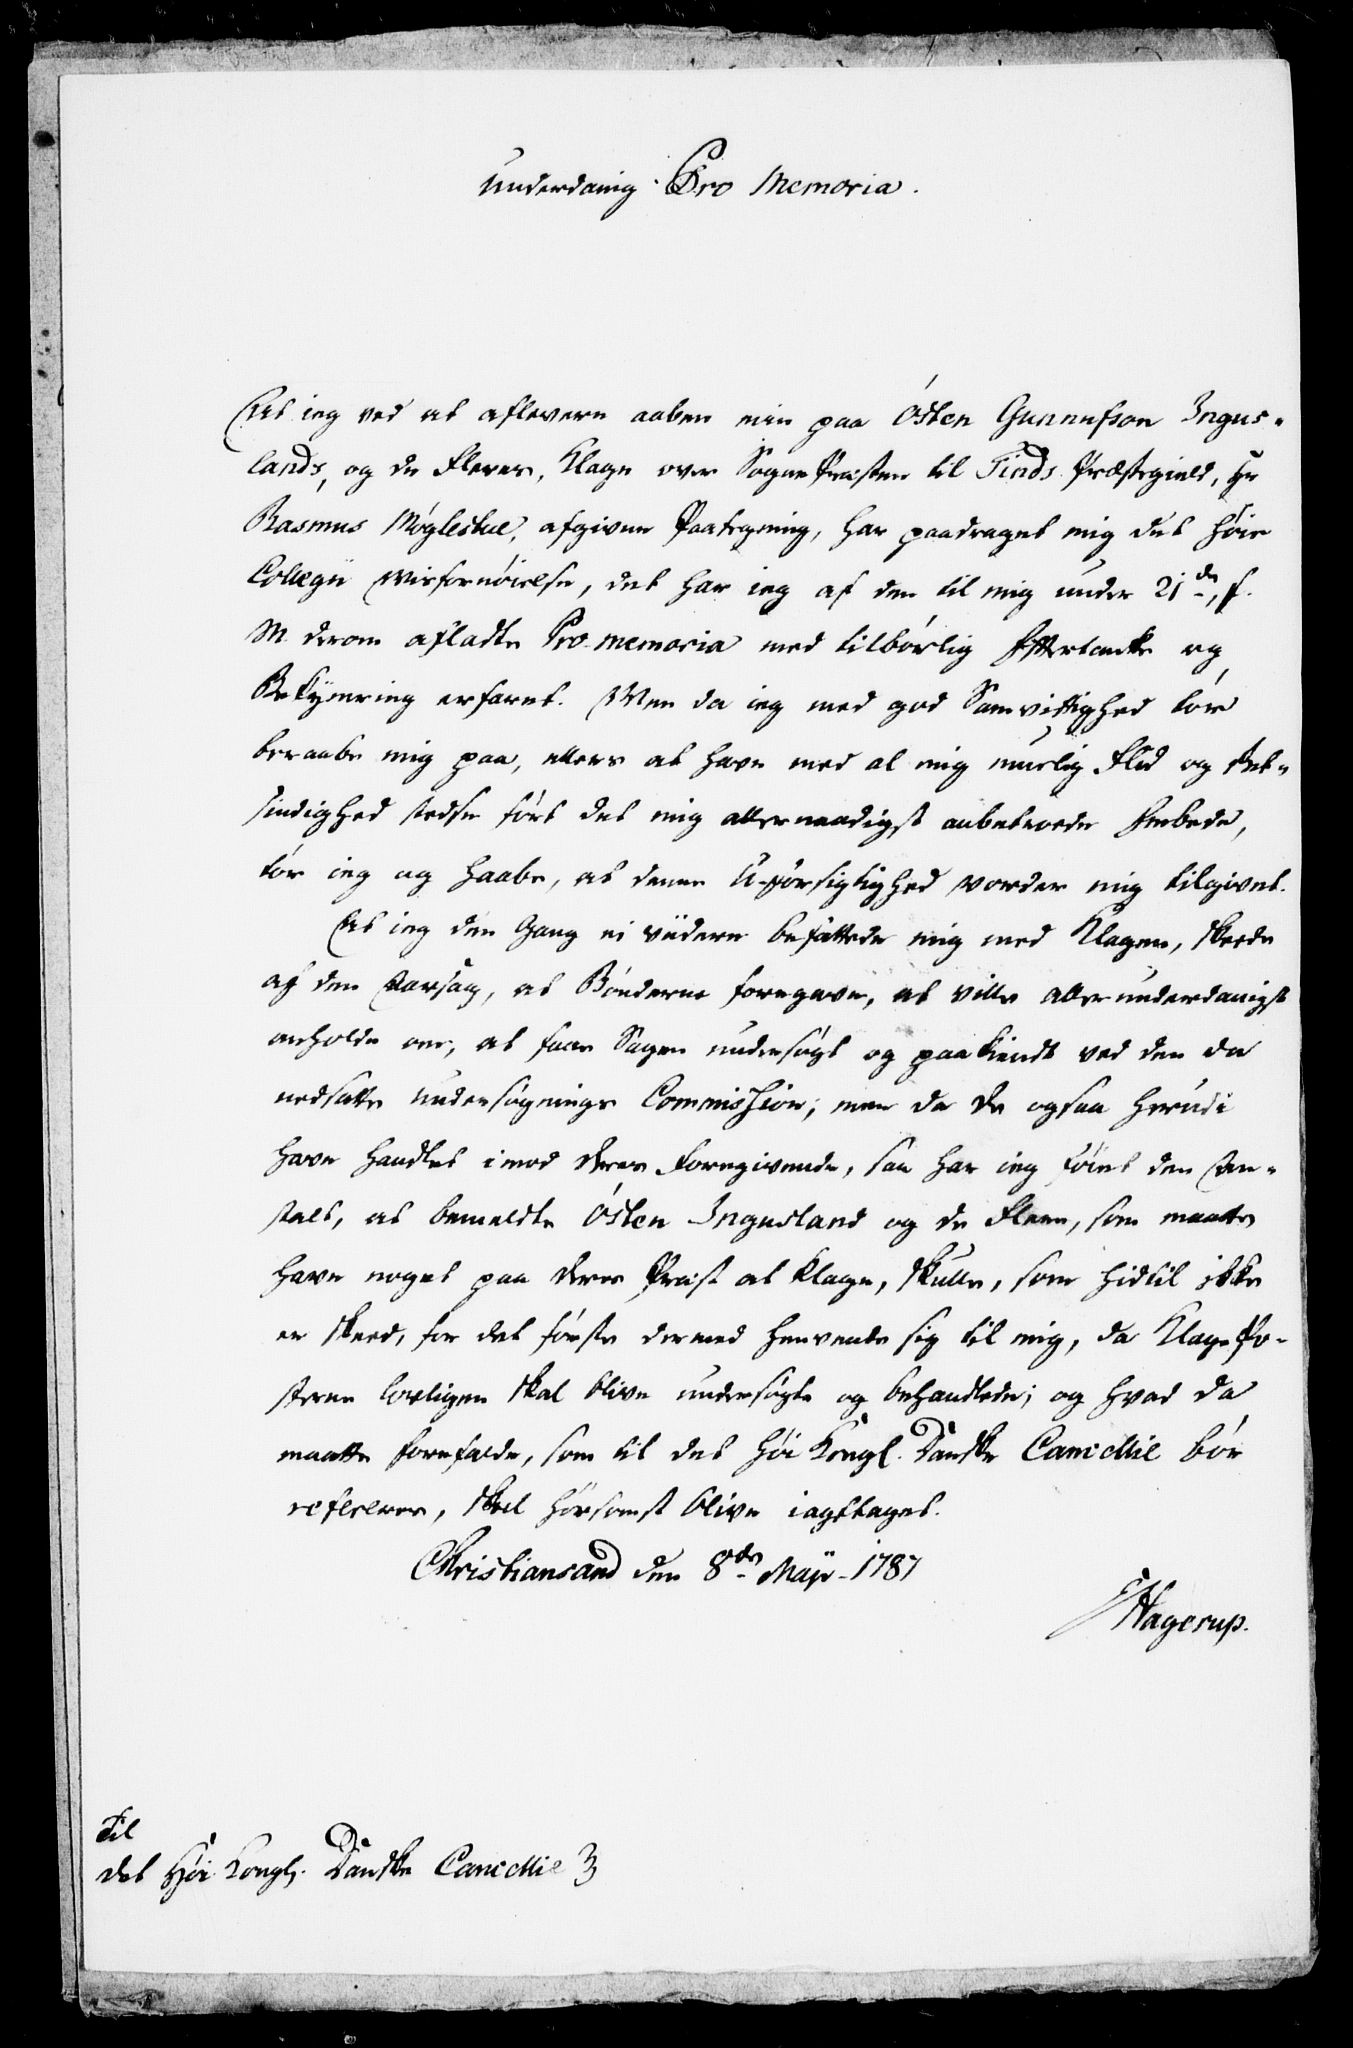 Underdanig Pro Memoria.
At ieg ved at aflevere aaben min paa Østen Gunnufson Ingus-
lands, og de Fleres, Klage over Sogne Præsten til Tinds Præstegield, Hr
Rasmus Møglestue, afgivne Paategning, har paadraget mig det høie
Collegii Misfornøielse, det har ieg af den til mig under 21de, f.
M. derom afladte Pro-memoria med tilbørlig Eftertanke og
Bekymring erfaret. Men da ieg med god Samvittighed tør
beraabe mig paa, ellers at have med al mig muelig Flid og Ret-
sindighed stedse ført det mig allernaadigst anbetroede Embede,
tør ieg og haabe, at denne U-forsigtighed vorder mig tilgivet.
At ieg den Gang ei viidere befattede mig med Klagen, skeede
af den Aarsag, at Bønderne foregave, at ville allerunderdanigst
anholde om, at faae Sagen undersøgt og paakiendt ved den da
nedsatte Undersøgnings Commishion; men da de ogsaa herudi
have handlet imod deres Foregivende, saa har ieg føiet den An-
stalt, at bemeldte Østen Ingusland og de Flere, som maatte
have noget paa deres Præst at klage, skulle, som hidtil ikke
er skeed, for det første dermed henvende sig til mig, da Klage Po-
sterne lovligen skal blive undersøgte og behandlede; og hvad da
maatte forefalde, som til det høi Kongl. Danske Cancellie bør
refereres, skal hørsomst blive iagttaget.
Christiansand den 8de Maji 1787
Hagerup.
Til
det Høi Kongl. Danske Cancellie